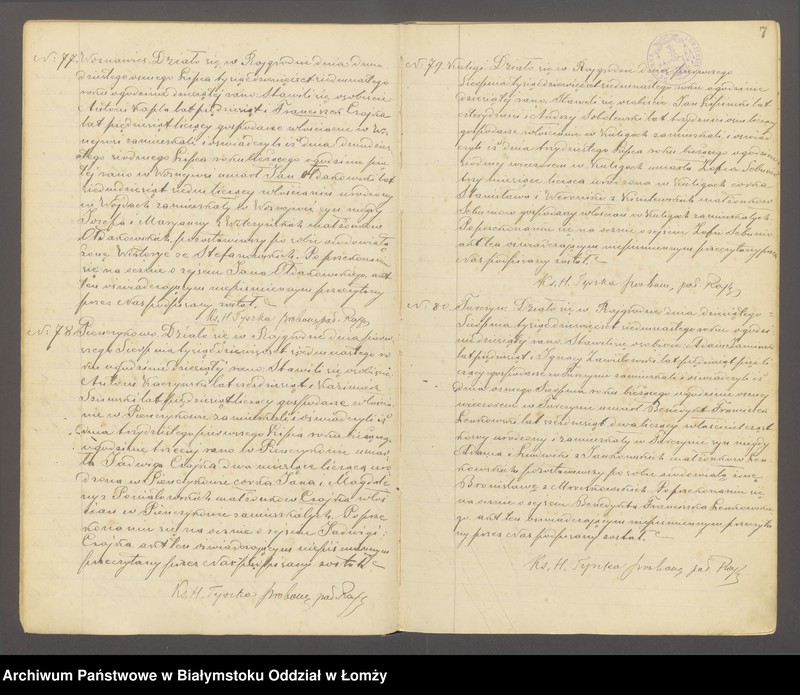 N. 77. Woznawieś. Działo się w Rajgrodzie dnia dwu
dziestego ósmego Lipca tysiąc dziewięćset siedemnastego
roku o godzinie dziesiątej rano. Stawili się osobiście
Antoni Kapla lat pięćdziesiąt i Franciszek Czajka
lat pięćdziesiąt liczący gospodarze włościanie w Wo
znejwsi zamieszkali i oświadczyli iż dnia dwudzies
tego siódmego Lipca roku bieżącego o godzinie pią
tej rano w Woznejwsi umarł Jan
siedemdziesiąt siedm liczący włościanin urodzony
w Wojdach zamieszkały w Woznejwsi syn niegdy
Józefa i Maryanny z małżonków
pozostawiwszy po sobie owdowiałą
żonę Wiktoryę ze Stefanowskich. Po przekonaniu
się na ocznie o zejściu Jana akt
ten oświadczającym niepiśmiennym przeczytany
przez Nas podpisany został.
Ks. H. Tyszka proboszcz par. Rajg
N. 78. Pieńczykowo. Działo się w Rajgrodzie dnia pierw
szego Sierpnia tysiąc dziewięćset siedemnastego ro
ku o godzinie dziesiątej rano. Stawili się osobiście
Antoni Kaczyński lat sześćdziesiąt i Kazimierz
lat pięćdziesiąt liczący gospodarze włościa
nie w Pieńczykowie zamieszkali i oświadczyli iż
dnia trzydziestego pierwszego Lipca roku bieżącego
o godzinie trzeciej rano w Pieńczykowie umar
ła Jadwiga Czajka dwa miesiące licząca uro
dzona w Pieńczykowie córka Jana i Magdale
ny z Poniatowskich małżonków Czajka włoś
cian w Pieńczykowie zamieszkałych. Po prze
konaniu się na ocznie o zejściu Jadwigi
Czajka akt ten oświadczającym niepiśmiennym
przeczytany przez Nas podpisany został.
Ks. H. Tyszka proboszcz par. Rajg
7
N. 79. Kuligi. Działo się w Rajgrodzie dnia pierwszego
Sierpnia tysiąc dziewięćset siedemnastego roku o godzinie
dziesiątej rano. Stawili się osobiście Jan lat
czterdzieści i Andrzej Sobolewski lat trzydzieści osm liczący
gospodarze włościanie w Kuligach zamieszkali i oświad
czyli iż dnia trzydziestego Lipca roku bieżącego o godzinie
siódmej wieczorem w Kuligach umarła Zofia
trzy miesiące licząca urodzona w Kuligach córka
Stanisława i Weroniki z małżonków
gospodarzy włościan w Kuligach zamieszkałych.
Po przekonaniu się na ocznie o zejściu Zofii
akt ten oświadczającym niepiśmiennym przeczytany przez
Nas podpisany został.
Ks. H. Tyszka proboszcz par. Rajg
N. 80. Turczyn. Działo się w Rajgrodzie dnia dziesiątego
Sierpnia tysiąc dziewięćset siedemnastego roku o godzi
nie dziesiątej rano. Stawili się osobiście Adam
lat pięćdziesiąt i Ignacy lat pięćdziesiąt pięć li
czący gospodarze w Turczynie zamieszkali i oświadczyli iż
dnia ósmego Sierpnia roku bieżącego o godzinie ósmej
wieczorem w Turczynie umarł Benedykt Franciszek
lat sześćdziesiąt dwa liczący właściciel cząst
kowy urodzony i zamieszkały w Turczynie syn niegdy
Adama i Ludwiki z Jankowskich małżonków
pozostawiwszy po sobie owdowiałą żonę
Bronisławę z Po przekonaniu się
na ocznie o zejściu Benedykta Franciszka
go akt ten oświadczającym niepiśmiennym przeczyta
ny przez Nas podpisany został.
Ks. H. Tyszka proboszcz par. Rajg
Archiwum Państwowe w Białymstoku Oddział w Łomży